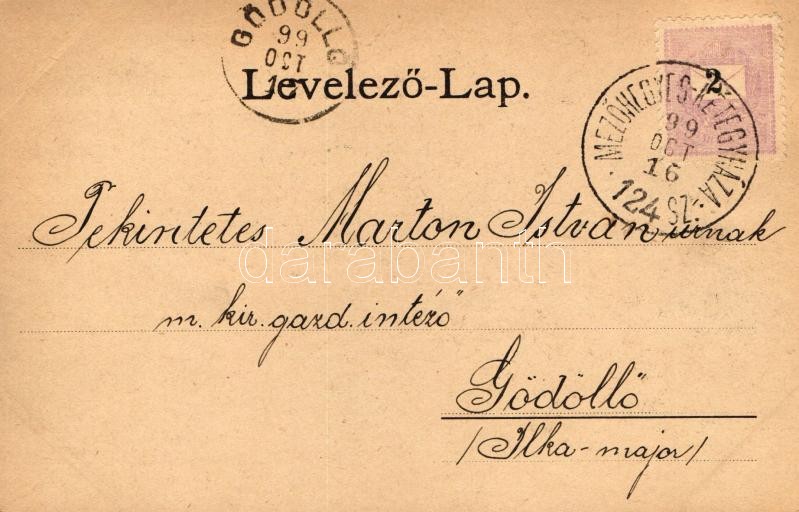 GÖDÖLLŐ
99
OCT
Levelező-Lap.
2
MEZŐHEGYES-KÉTEGYHÁZA
99
OCT
16
124 SZ.
Tekintetes Marton István úrnak
darabanth
m. kir. gazd. intéző
Gödöllő
/Ilka-major/